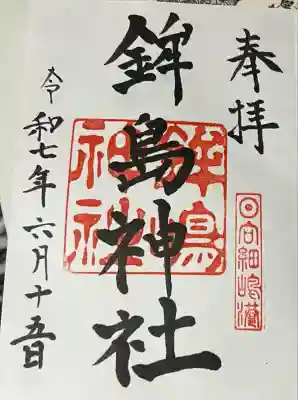 奉拝
日向細嶋港
鉾島神社
鉾島神社
令和七年六月十五日